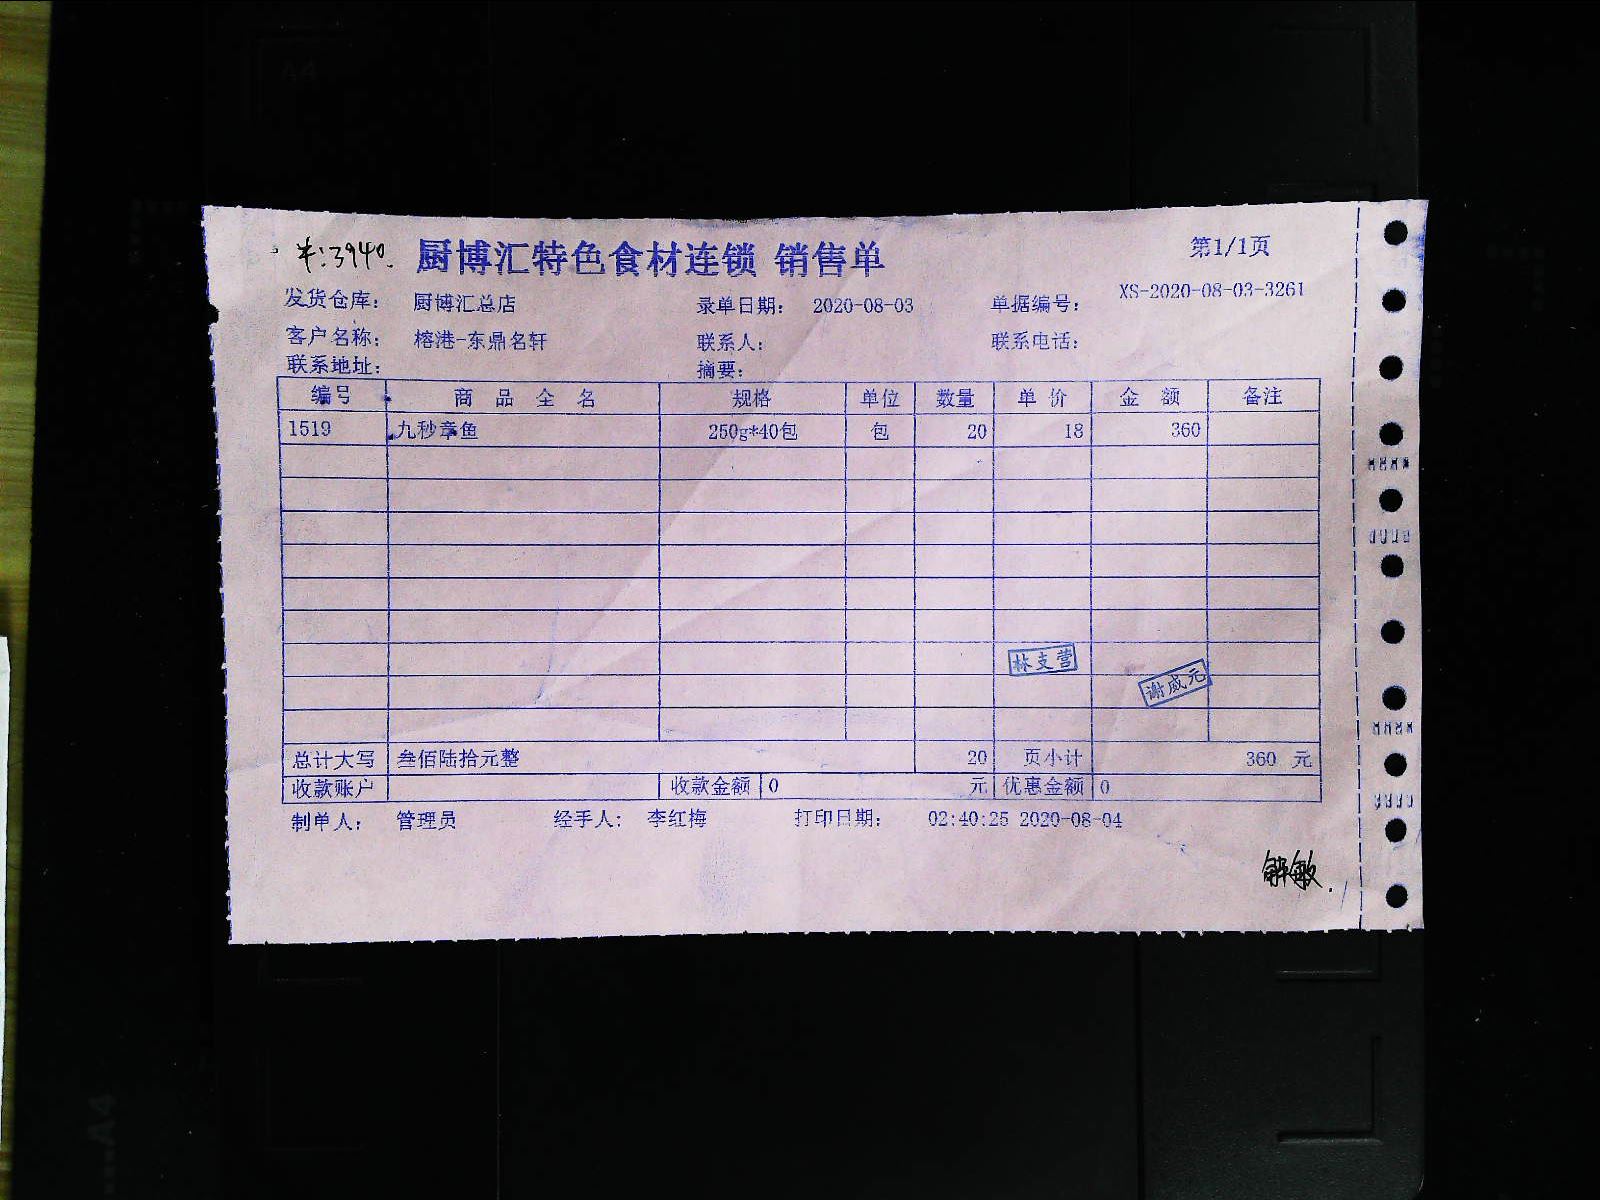 半:3940.
厨博汇特色食材连锁 销售单
第1/1页
发货仓库: 厨博汇总店 录单日期: 2020-08-03 单据编号: XS-2020-08-03-3261
客户名称: 榕港-东鼎名轩 联系人: 联系电话:
联系地址: 摘要:
编号 商品全名 规格 单位 数量 单价 金额 备注
1519 九秒章鱼 250g*40包 包 20 18 360
林支营
谢威元
总计大写 叁佰陆拾元整 20 页小计 360 元
收款账户 收款金额 0 元 优惠金额 0
制单人: 管理员 经手人: 李红梅 打印日期: 02:40:25 2020-08-04
解敏.
A4